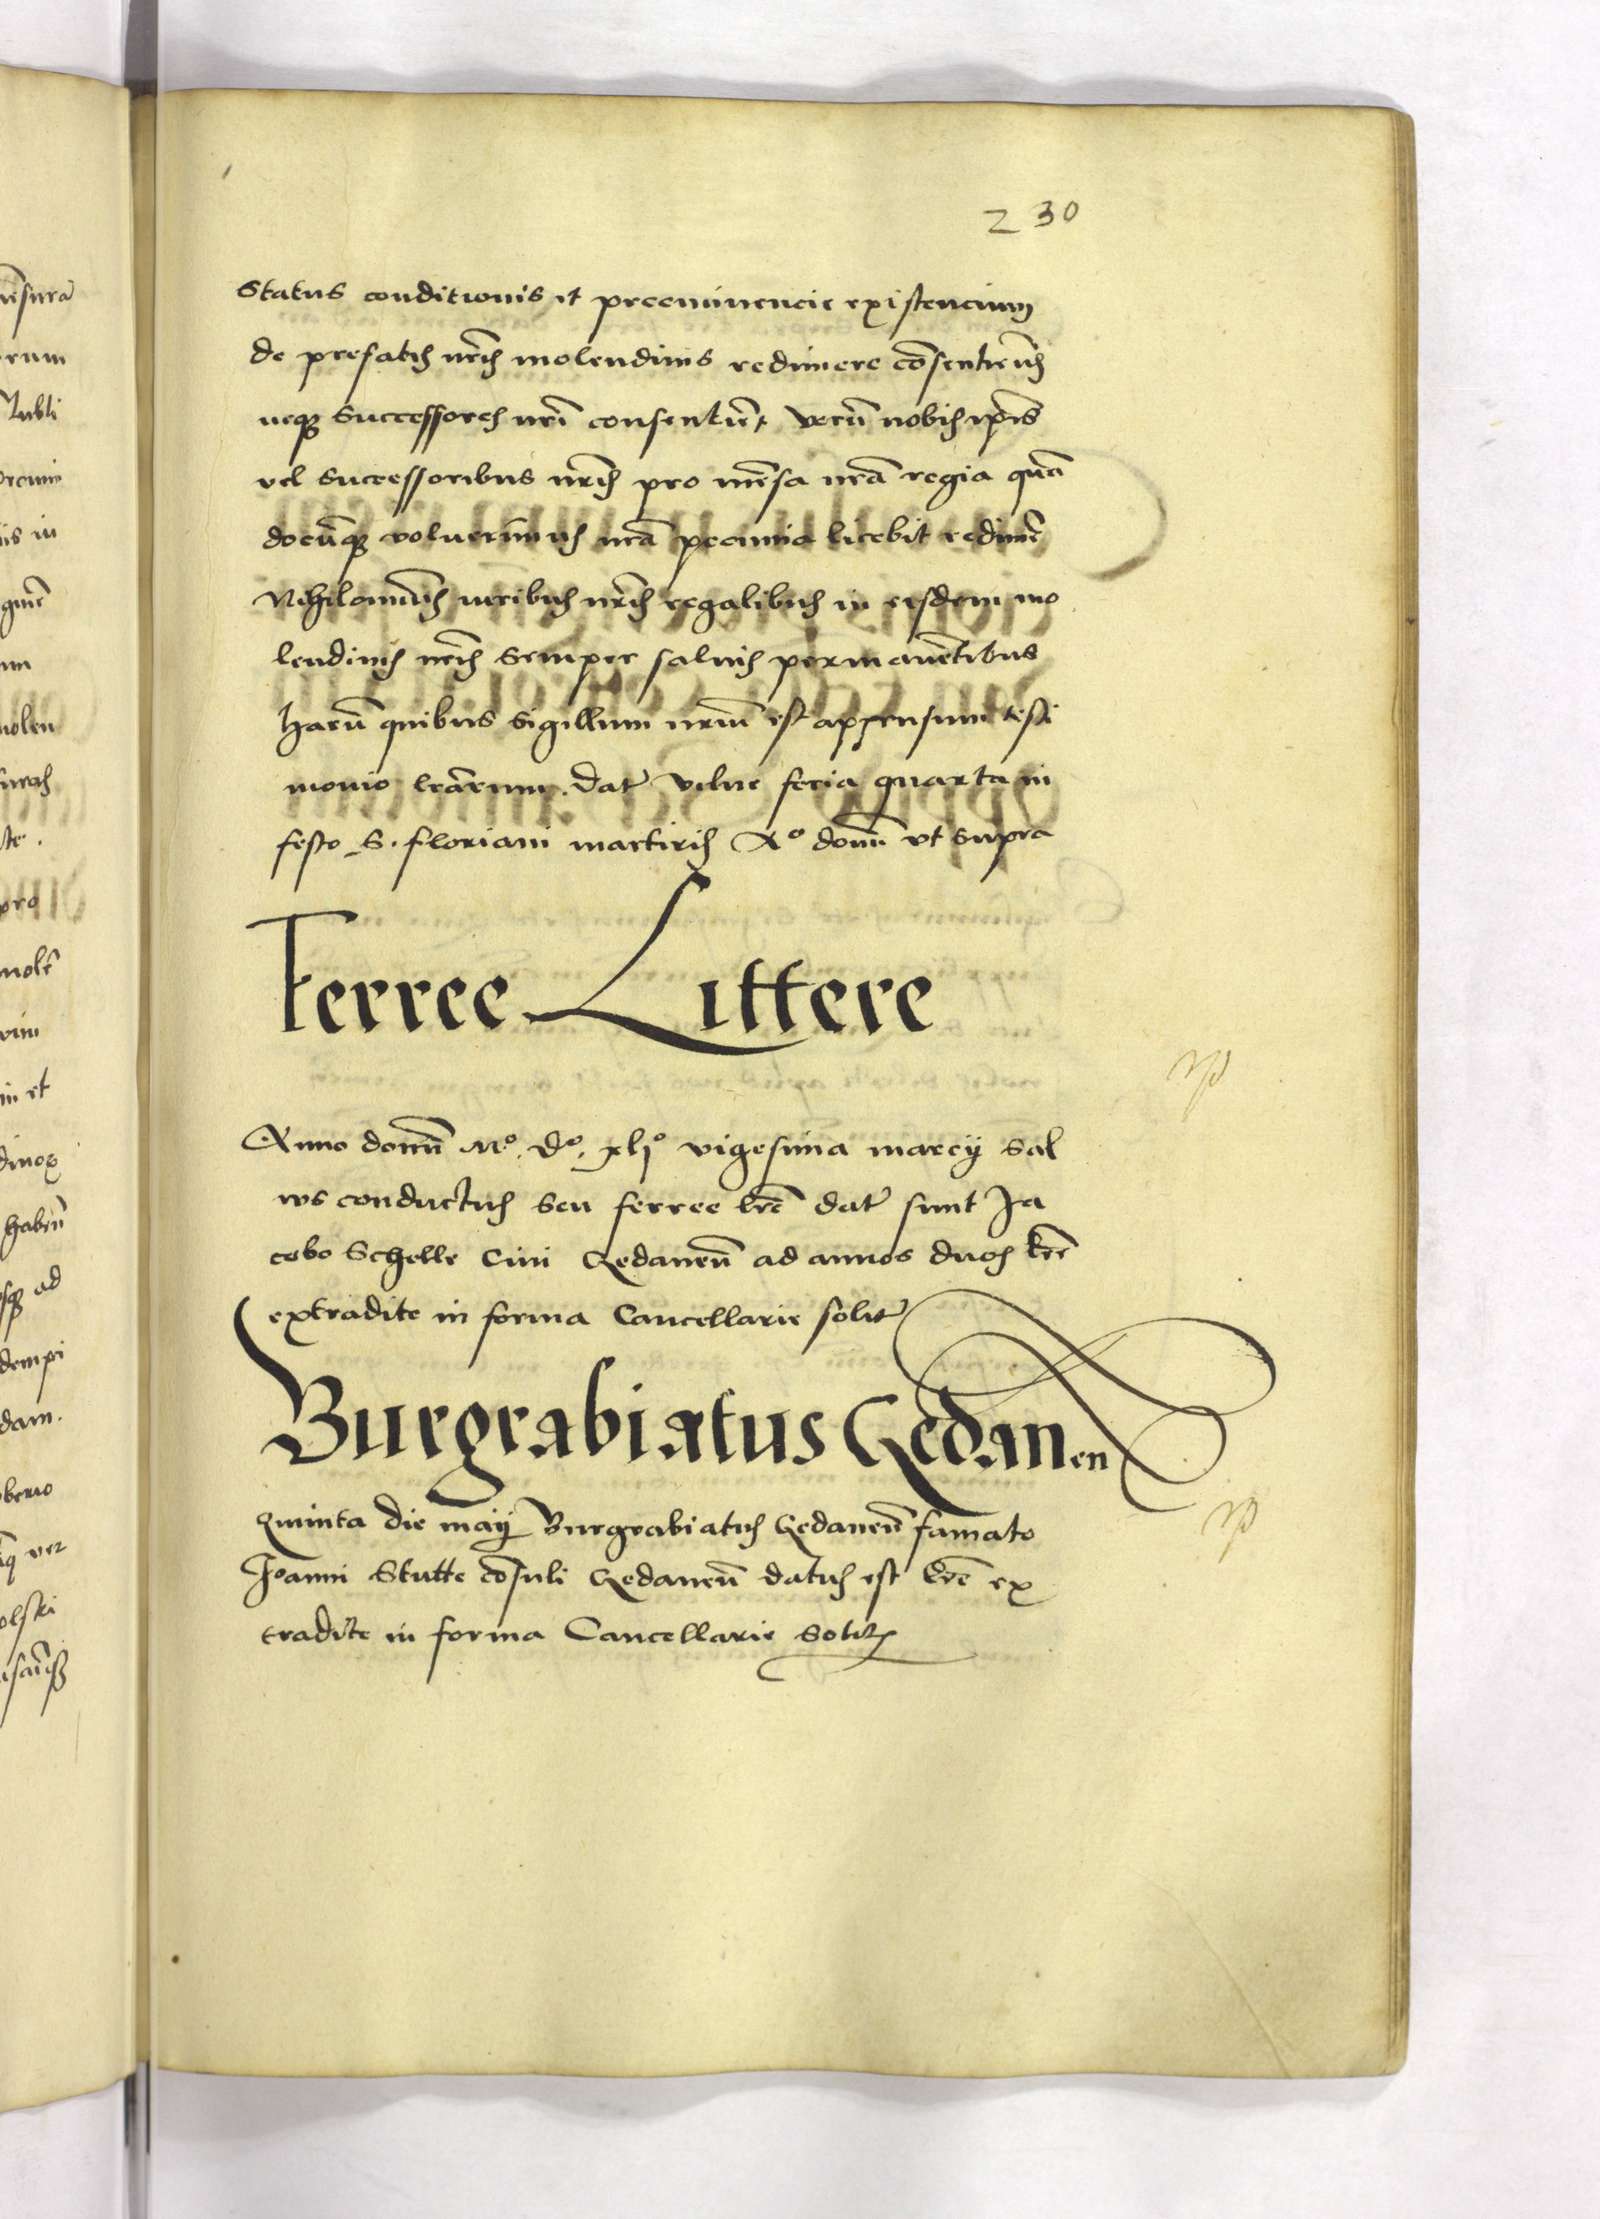 230
Status conditionis et preeminencie existencium
de prefatis nr̃is molendinis redimere cõsentiem9
neq3 Successores nr̃i consentiẽt, verũ nobis ip̃is
vel Successoribus nr̃is pro mẽsa nr̃a regia quã
docũq3 voluerimus nr̃a pecunia licebit redimẽ
Nihilominus iuribus nr̃is regalibus in eisdem mo
lendinis nr̃is semper saluis permanẽtibus
harũ quibus Sigillum nr̃um est appensum testi
monio lr̃arum. Dat̃ Vilne feria quarta in
festo S. Floriani martiris Aº domĩ vt supra
Ferree Littere
Anno domĩ Mº. Dº. xljº vigesima marcij Sal
uus conductus seu ferree lr̃e dat̃ sunt Ja
cobo Schelle Ciui Gedaneñ ad annos duos lr̃e
extradite in forma Cancellarie solit̃
Burgrabiatus Gedanen
Quinta die maij Burgrabiatus Gedaneñ famato
Joanni Stutte cõsuli Gedaneñ datus est lr̃e ex
tradite in forma Cancellarie solit̃